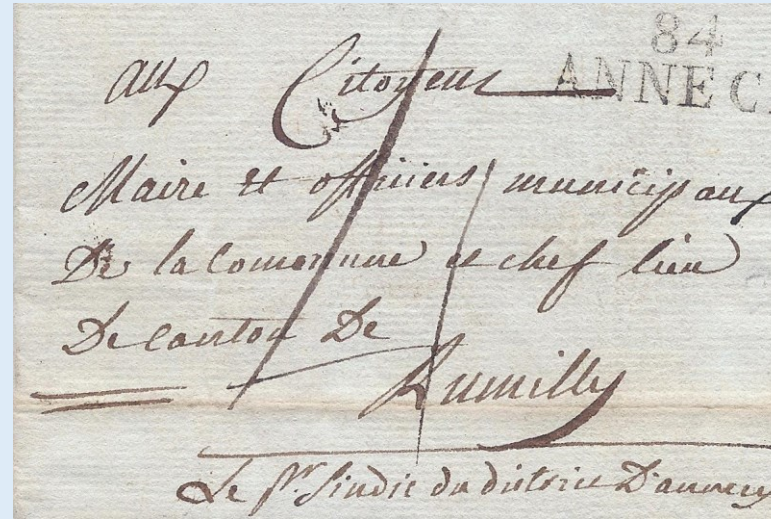 84
ANNEC
aux Citoyens
Maire et officiers municipaux
De la Commune et chef lieu
De Canton De
Rumilly
Le Pr Sindic du district D'annecy